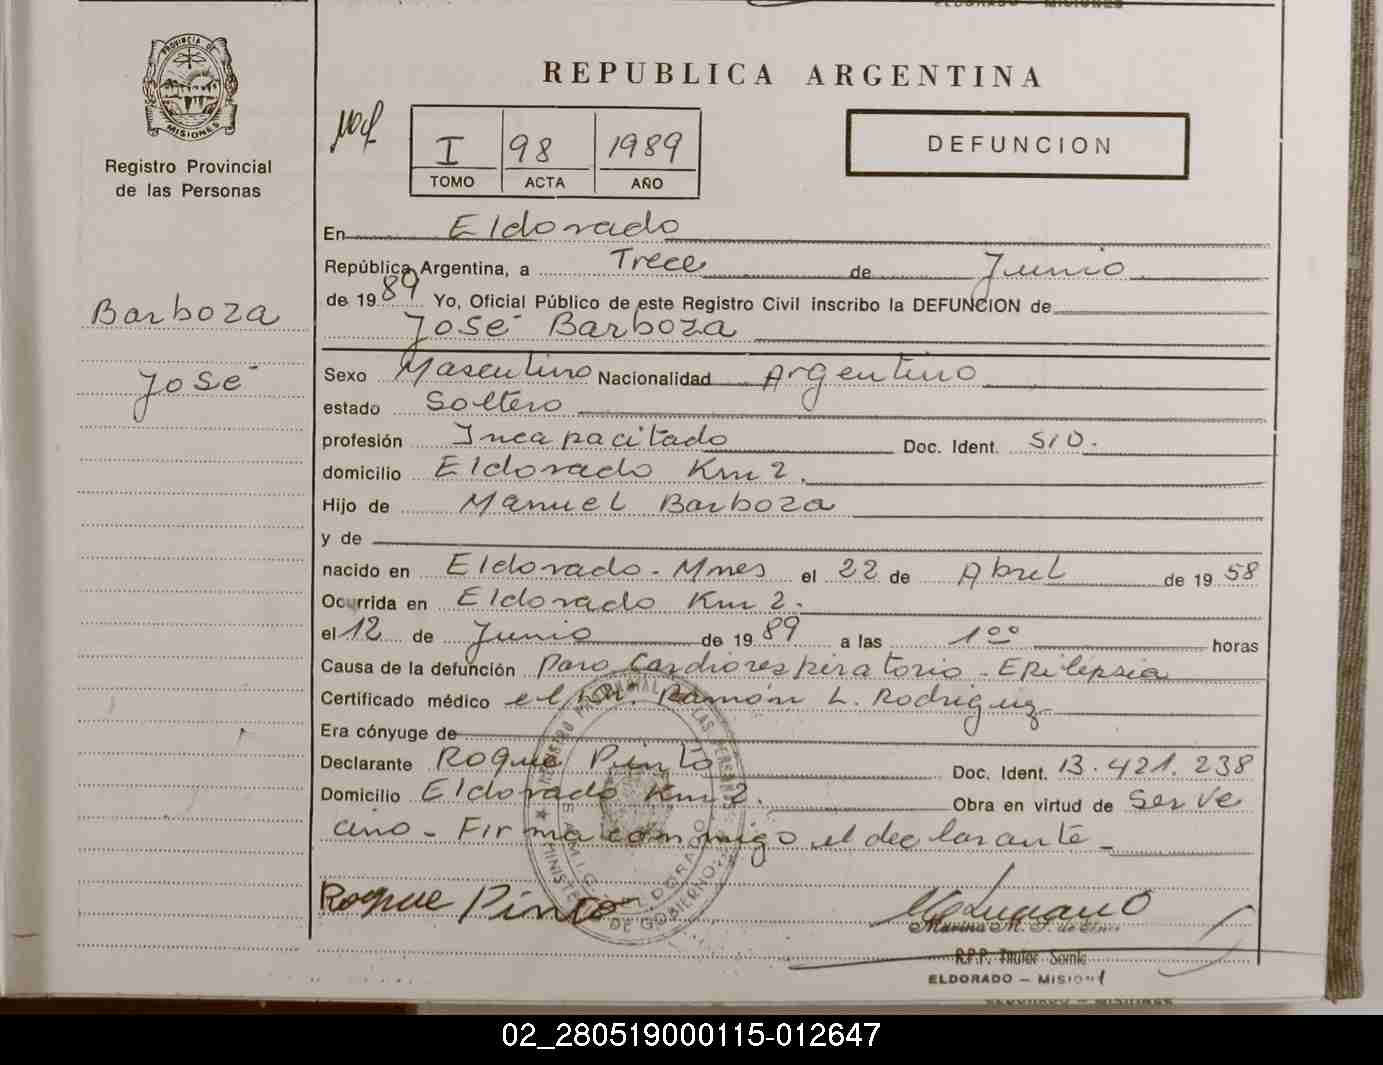 PROVINCIA DE
MISIONES
Registro Provincial
de las Personas
Barboza
José
REPUBLICA ARGENTINA
I 98 1989
TOMO ACTA AÑO
DEFUNCION
En Eldorado
República Argentina, a Trece de Junio
de 1989 Yo, Oficial Público de este Registro Civil inscribo la DEFUNCION de
José Barboza
Sexo Masculino Nacionalidad Argentino
estado Soltero
profesión Incapacitado Doc. Ident. S/D.
domicilio Eldorado Km 2.
Hijo de Manuel Barboza
y de
nacido en Eldorado - Mnes el 22 de Abril de 1958
Ocurrida en Eldorado Km 2.
el 12 de Junio de 1989 a las 1 00 horas
Causa de la defunción Paro Cardiorespiratorio - Epilepsia
Certificado médico el Dr. Ramón L. Rodriguez
Era cónyuge de
Declarante Roque Pinto Doc. Ident. 13.421.238
Domicilio Eldorado Km 2. Obra en virtud de Ser ve
cino - Firma conmigo el declarante -
Roque Pinto
R.P.P. Titular
ELDORADO - MISIONES
02_280519000115-012647